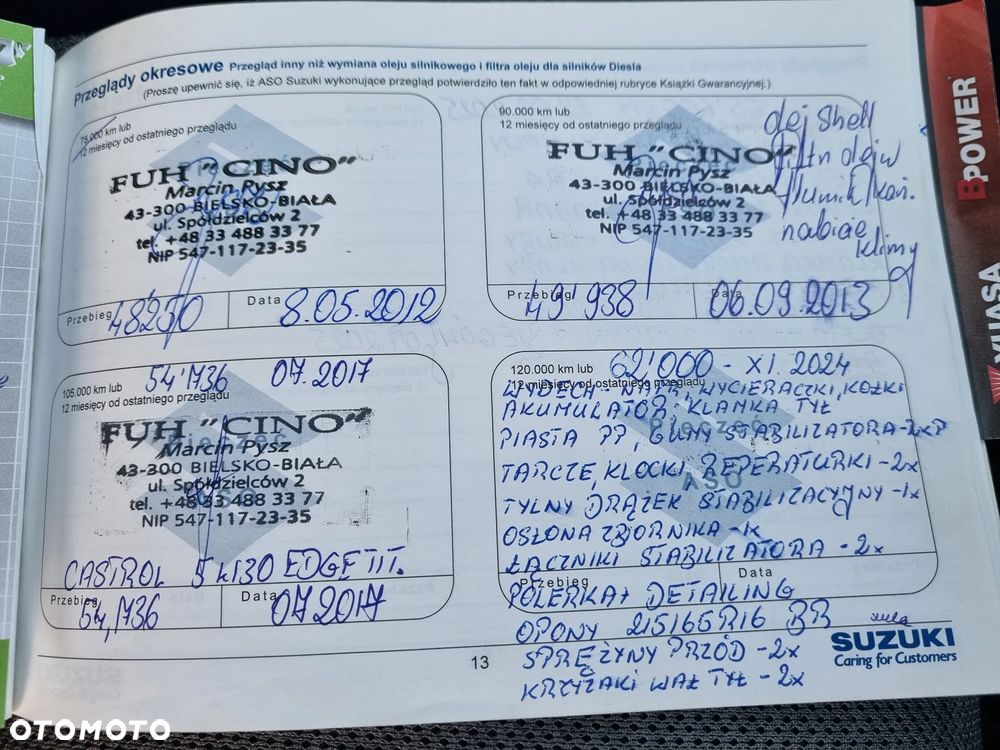 Przeglądy okresowe Przegląd inny niż wymiana oleju silnikowego i filtra oleju dla silników Diesla
(Proszę upewnić się, iż ASO Suzuki wykonujące przegląd potwierdziło ten fakt w odpowiedniej rubryce Książki Gwarancyjnej.)
75.000 km lub
12 miesięcy od ostatniego przeglądu
FUH "CINO"
Marcin Pysz
43-300 BIELSKO-BIAŁA
ul. Spółdzielców 2
tel. +48 33 488 33 77
NIP 547-117-23-35
Przebieg 48250 Data 8.05.2012
90.000 km lub
12 miesięcy od ostatniego przeglądu
olej Shell
filtr oleju
nabicie
klimy
FUH "CINO"
Marcin Pysz
43-300 BIELSKO-BIAŁA
ul. Spółdzielców 2
tel. +48 33 488 33 77
NIP 547-117-23-35
Przebieg 49'938 Data 06.09.2013
105.000 km lub 54'736 07.2017
12 miesięcy od ostatniego przeglądu
FUH "CINO"
Marcin Pysz
43-300 BIELSKO-BIAŁA
ul. Spółdzielców 2
tel. +48 33 488 33 77
NIP 547-117-23-35
CASTROL 5W30 EDGE TIT.
Przebieg 54,736 Data 07.2017
120.000 km lub 62'000 - XI. 2024
12 miesięcy od ostatniego przeglądu
WYDECH - NAPR, WYCIERACZKI, KOŁKI
AKUMULATOR, KLAMKA TYŁ
PIASTA PP, GUMY STABILIZATORA - 2xP
TARCZE, KLOCKI, REPERATURKI - 2x
ASO
TYLNY DRĄŻEK STABILIZACYJNY - 1x
OSŁONA ZBIORNIKA - 1x
ŁĄCZNIKI STABILIZATORA - 2x
Przebieg Data
POLERKA + DETAILING
OPONY 215/65R16 BR
SPRĘŻYNY PRZÓD - 2x
KRZYŻAKI WAŁ TYŁ - 2x
13
SUZUKI
Caring for Customers
BPOWER
OTOMOTO